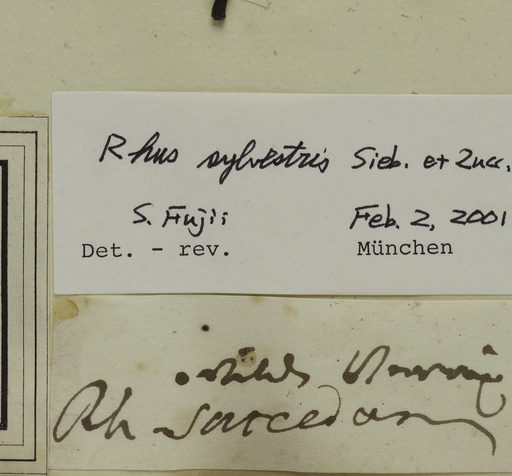 Rhus sylvestris Sieb. et Zucc.
S. Fujii Feb. 2, 2001
Det. - rev. München
Rh